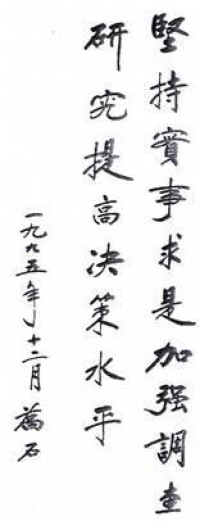 堅持實事求是加强調查
研究提高决策水平
一九九五年十二月 萬石